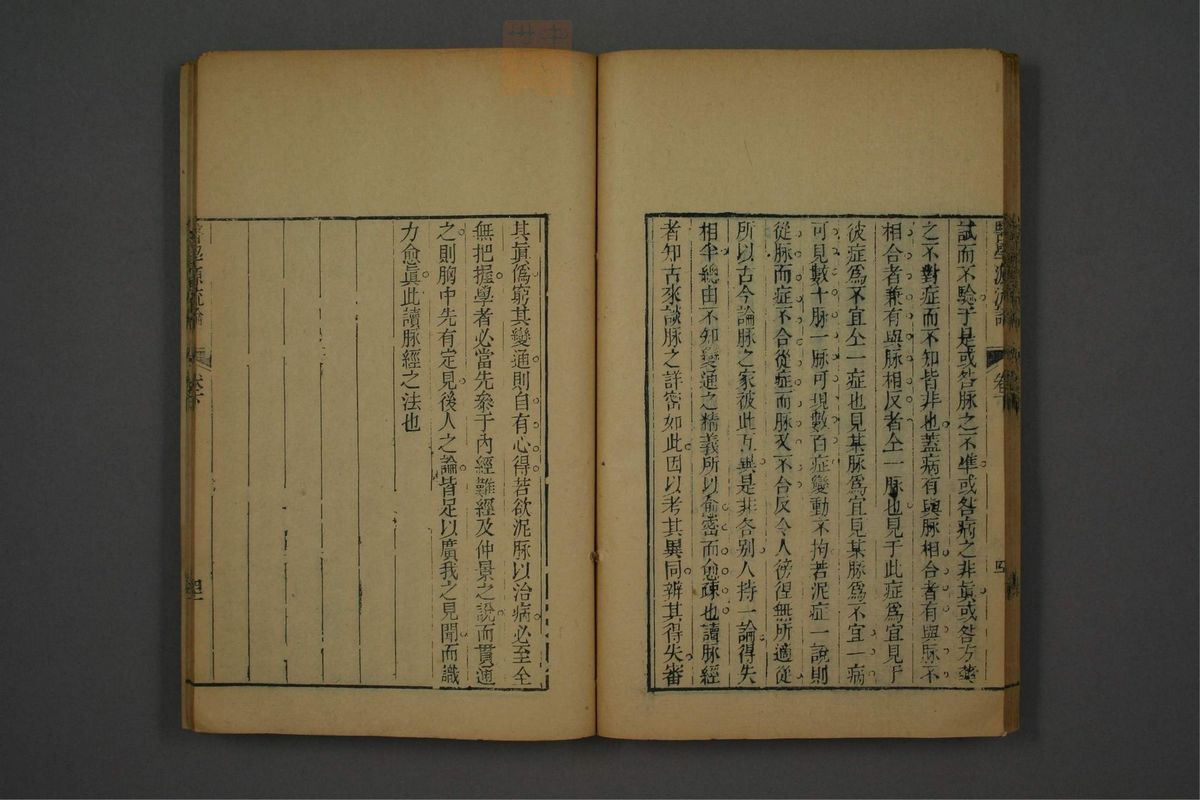 試而不驗于是或咎脉之不準或咎病之非眞或咎方藥
之不對症而不知皆非也蓋病有與脉相合者有與脉不
相合者兼有與脉相反者仝一脉也見于此症爲宜見于
彼症爲不宜仝一症也見某脉爲宜見某脉爲不宜一病
可見數十脉一脉可現數百症變動不拘若泥定一說則
從脉而症不合從症而脉又不合反令人徬徨無所適從
所以古今論脉之家彼此互異是非各别人持一論得失
相半總由不知變通之精義所以愈密而愈疎也讀脉經
者知古來談脉之詳密如此因以考其異同辨其得失審
其眞僞窮其變通則自有心得若欲泥脉以治病必至全
無把握學者必當先叅于內經難經及仲景之說而貫通
之則胸中先有定見後人之論皆足以廣我之見聞而識
力愈眞此讀脉經之法也
醫學源流論